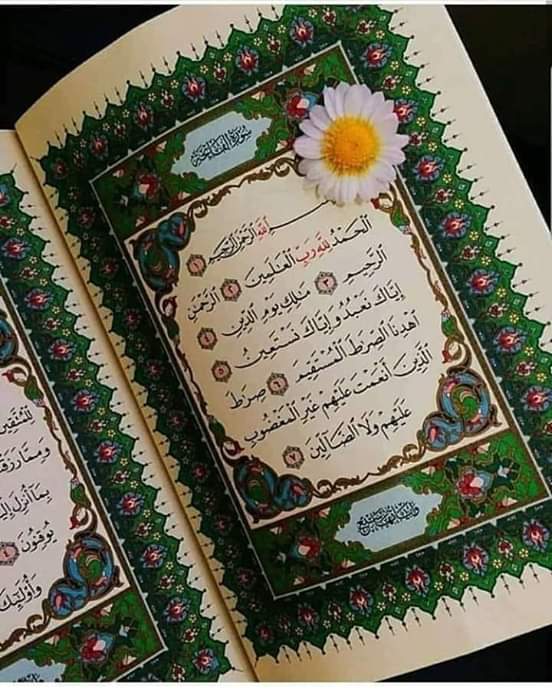 سُورَةُ الْفَاتِحَةِ
اللَّهِ الرَّحْمَٰنِ الرَّحِيمِ ١
الْحَمْدُ لِلَّهِ رَبِّ الْعَٰلَمِينَ ٢ الرَّحْمَٰنِ
الرَّحِيمِ ٣ مَٰلِكِ يَوْمِ الدِّينِ ٤
إِيَّاكَ نَعْبُدُ وَإِيَّاكَ نَسْتَعِينُ ٥
اهْدِنَا الصِّرَٰطَ الْمُسْتَقِيمَ ٦ صِرَٰطَ
الَّذِينَ أَنْعَمْتَ عَلَيْهِمْ غَيْرِ الْمَغْضُوبِ
عَلَيْهِمْ وَلَا الضَّالِّينَ ٧
لِلْمُتَّقِينَ
وَمِمَّا
بِمَا أُنْزِلَ
يُوقِنُونَ ٤
وَأُولَٰئِكَ